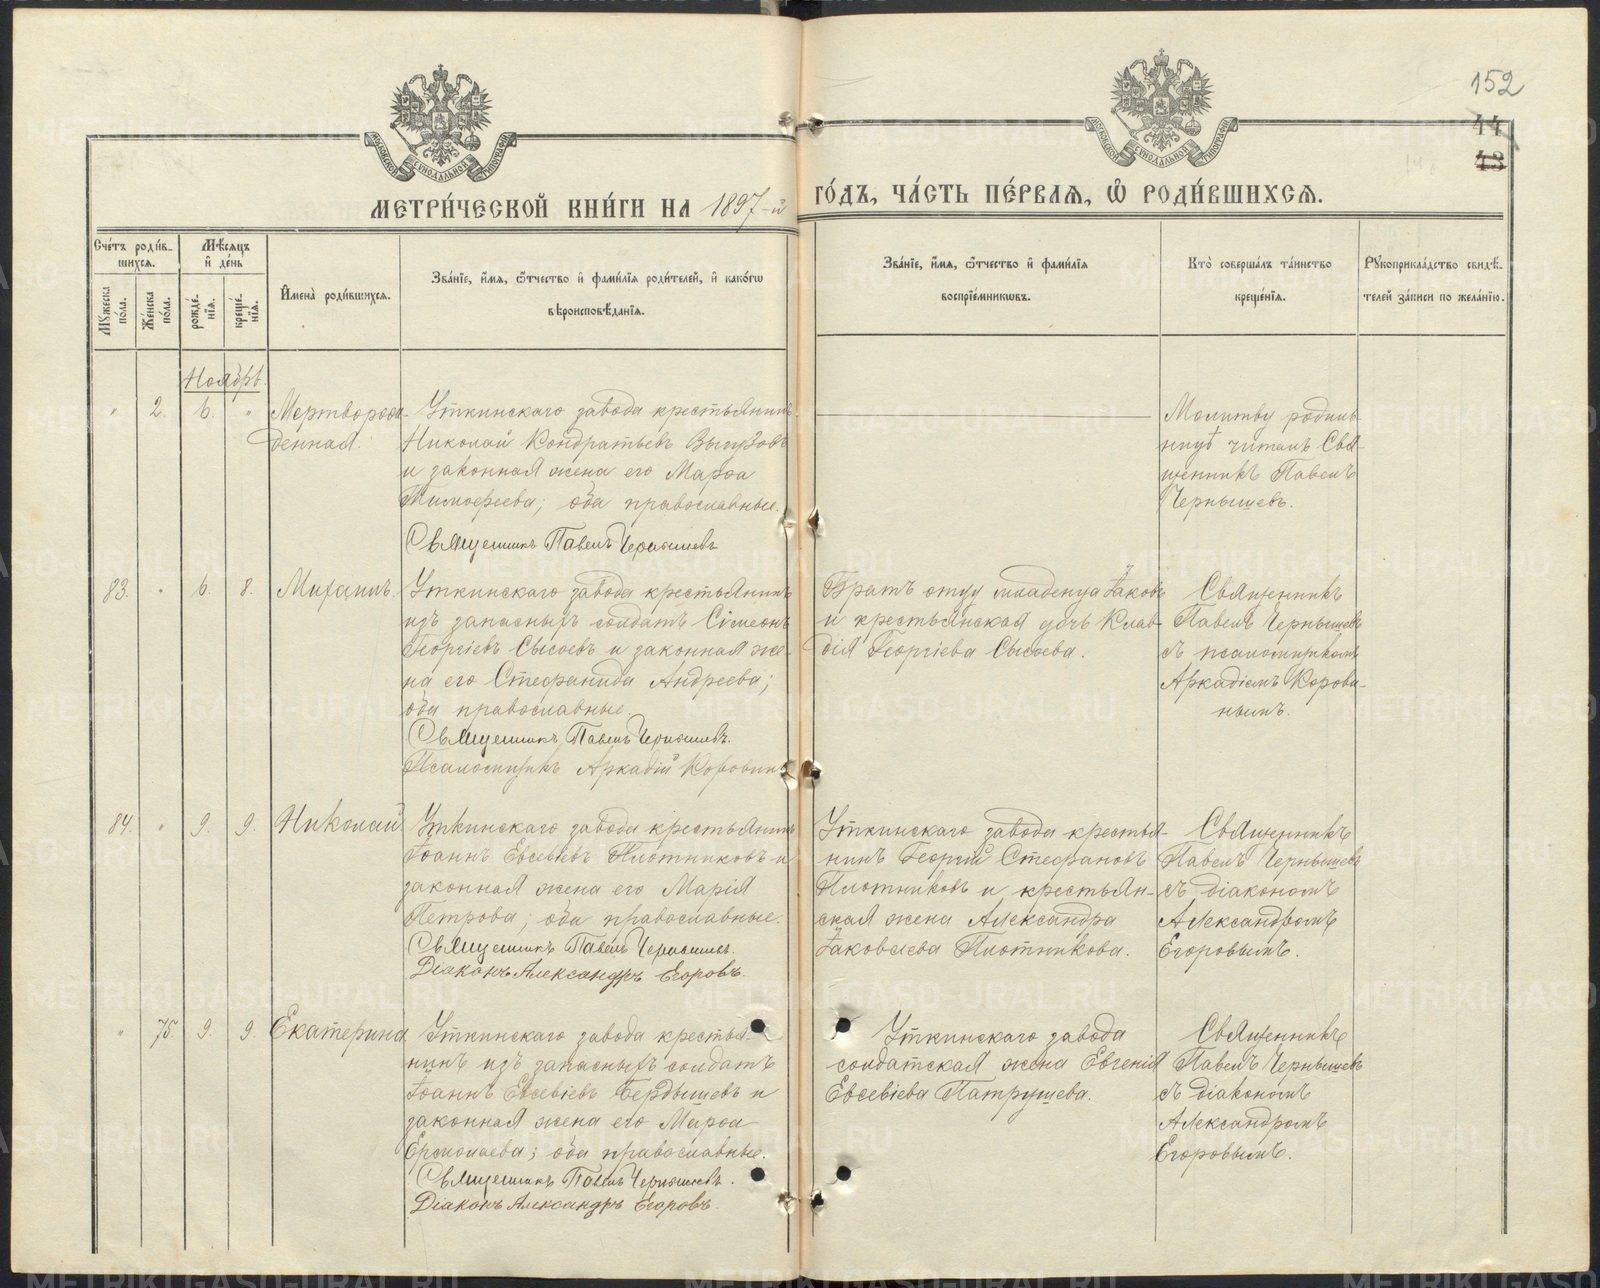 152
44
43
МЕТРИ́ЧЕСКОЙ КНИ́ГИ НА 1897-й
ГО́ДЪ, ЧА́СТЬ ПЕ́РВАѦ, Ѡ҆ РОДИ́ВШИХСѦ.
Сче́тъ роди́в-
шихсѧ.
Мѣ́сѧцъ
и҆ де́нь
Мꙋ́жеска
по́ла.
Же́нска
по́ла.
рожде́-
нїѧ.
креще́-
нїѧ.
И҆мена̀ роди́вшихсѧ.
Зва́нїе, и҆́мѧ, ѻ҆́тчество и҆ фами́лїѧ роди́телей, и҆ како́гѡ
вѣроисповѣ́данїѧ.
Зва́нїе, и҆́мѧ, ѻ҆́тчество и҆ фами́лїѧ
воспрїе́мникѡвъ.
Кто̀ соверша́лъ та́инство
креще́нїѧ.
Рꙋкоприкла́дство свидѣ́-
телей за́писи по жела́нїю.
Ноябрь.
" 2. 6. " Мертворож-
денная.
Уткинскаго завода крестьянинъ
Николай Кондратьевъ Выгузовъ
и законная жена его Марѳа
Тимоѳеева; оба православные.
Священникъ Павелъ Чернышевъ
Молитву родиль-
ницѣ читалъ Свя-
щенникъ Павелъ
Чернышевъ.
83. " 6. 8. Михаилъ.
Уткинскаго завода крестьянинъ
изъ запасныхъ солдатъ Сімеонъ
Георгіевъ Сысоевъ и законная же-
на его Стефанида Андреева;
оба православные.
Священникъ Павелъ Чернышевъ.
Псаломщикъ Аркадій Коровинъ
Братъ отцу младенца Іаковъ
и крестьянская дочь Клав-
дія Георгіева Сысоева.
Священникъ
Павелъ Чернышевъ
съ псаломщикомъ
Аркадіемъ Корови-
нымъ.
84. " 9. 9. Николай
Уткинскаго завода крестьянинъ
Іоаннъ Евсевіевъ Плотниковъ и
законная жена его Марія
Петрова; оба православные.
Священникъ Павелъ Чернышевъ.
Діаконъ Александръ Егоровъ.
Уткинскаго завода крестья-
нинъ Георгій Стефановъ
Плотниковъ и крестьян-
ская жена Александра
Іаковлева Плотникова.
Священникъ
Павелъ Чернышевъ
съ діакономъ
Александромъ
Егоровымъ.
" 75. 9. 9. Екатерина
Уткинскаго завода крестья-
нинъ изъ запасныхъ солдатъ
Іоаннъ Евсевіевъ Бердышевъ и
законная жена его Марѳа
Ермолаева; оба православные.
Священникъ Павелъ Чернышевъ.
Діаконъ Александръ Егоровъ.
Уткинскаго завода
солдатская жена Евгенія
Евсевіева Патрушева.
Священникъ
Павелъ Чернышевъ
съ діакономъ
Александромъ
Егоровымъ.